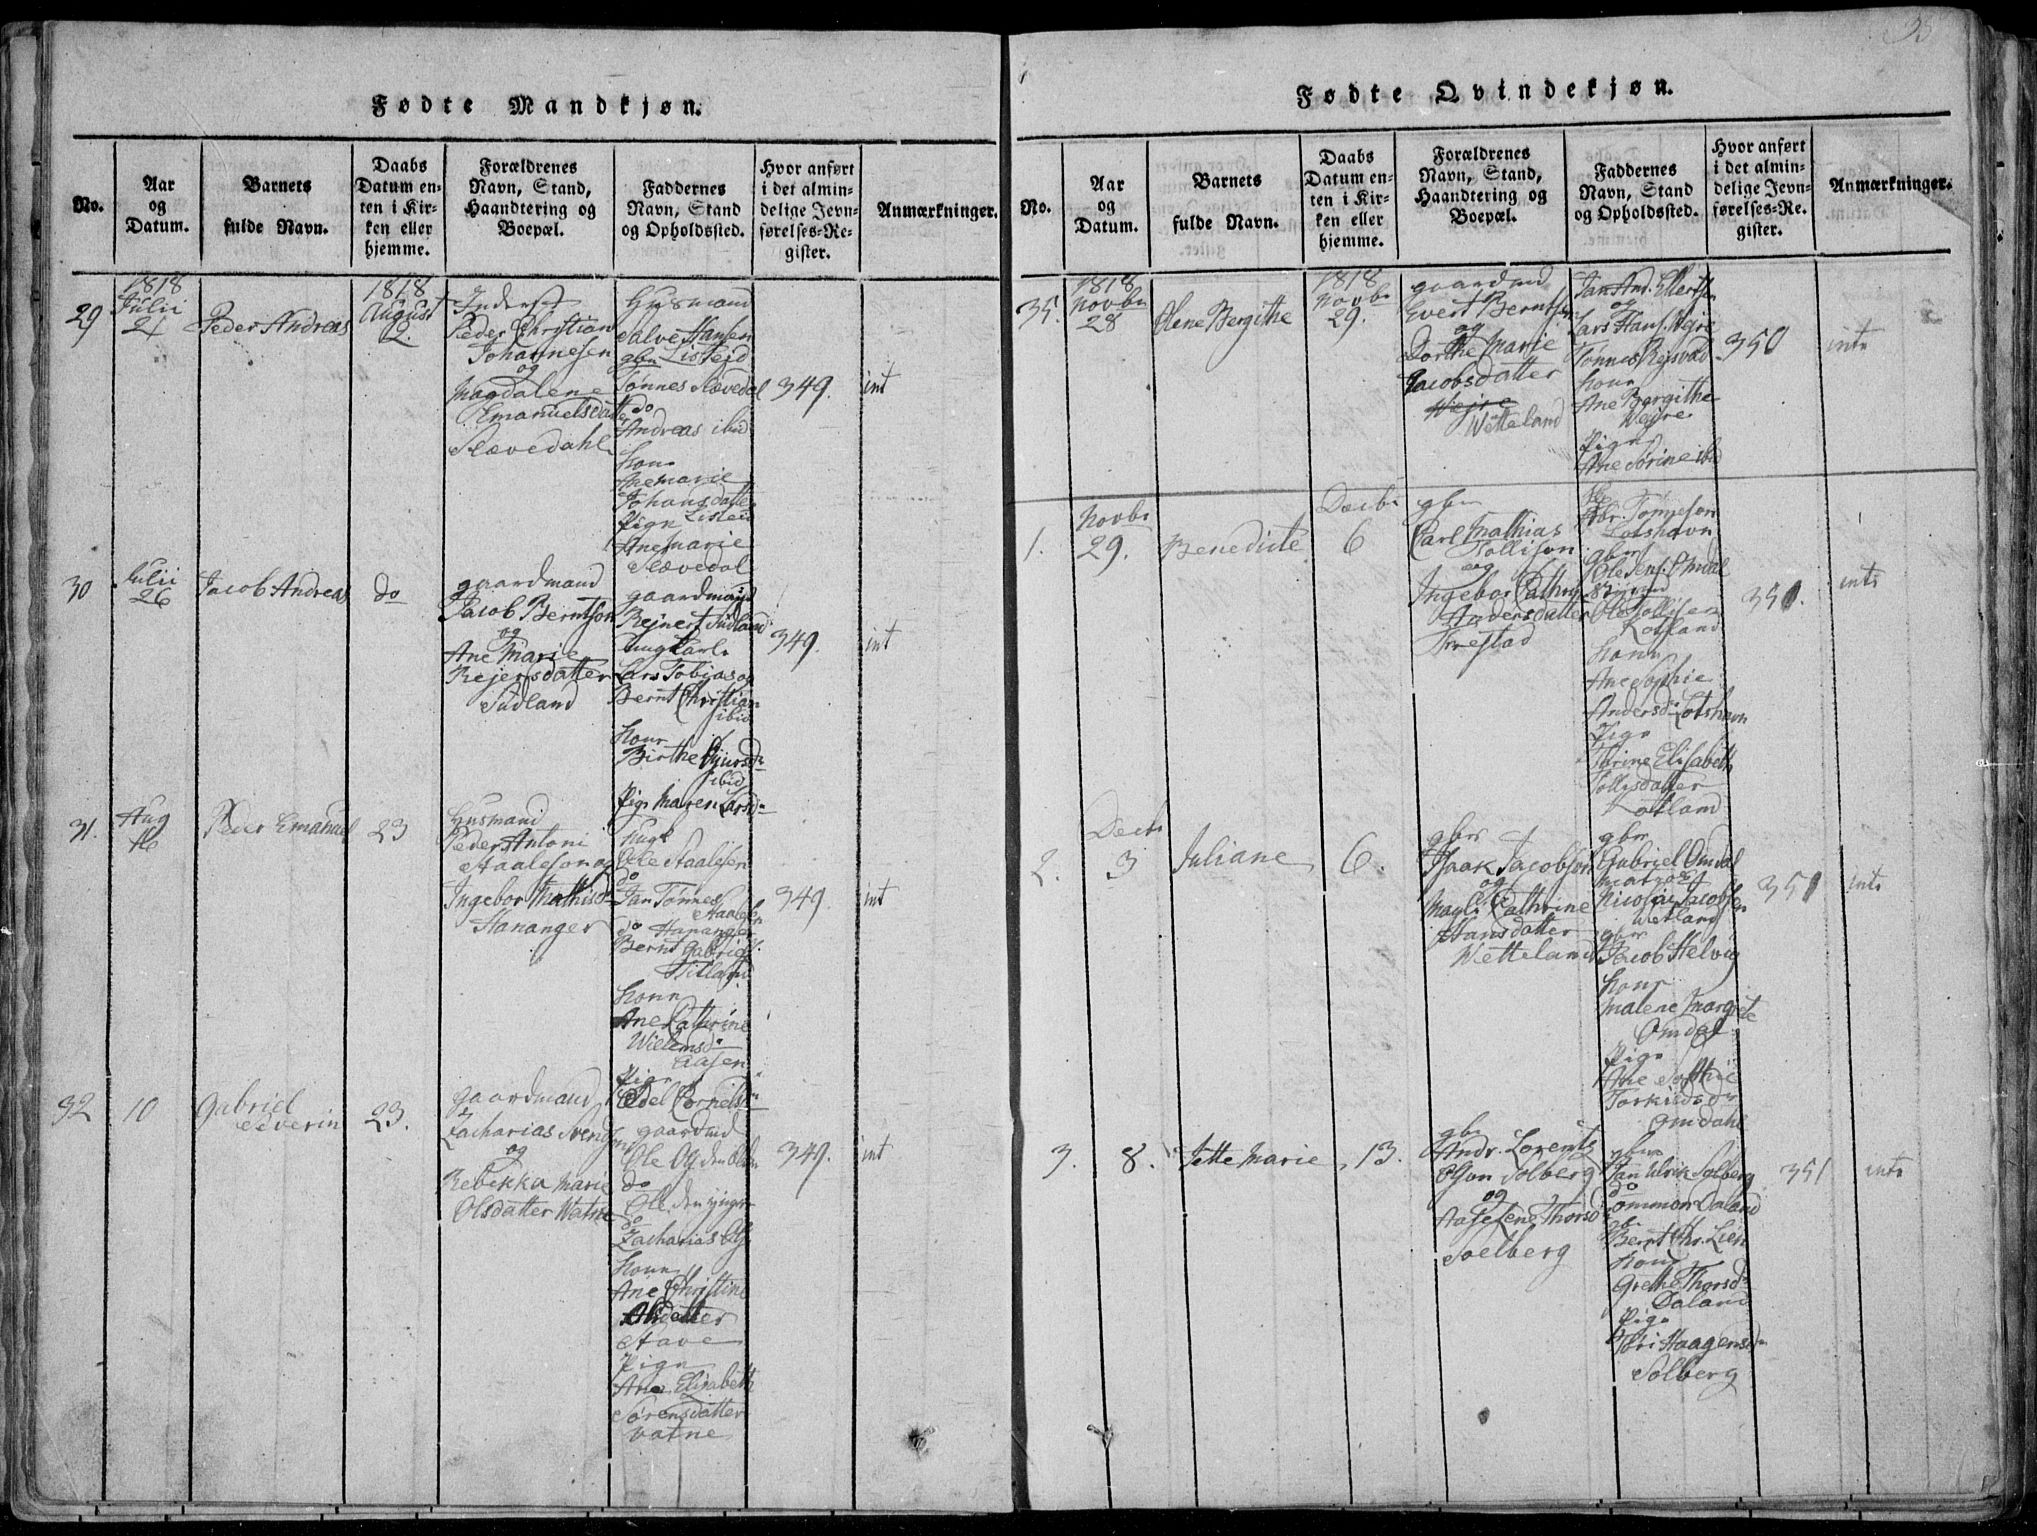 Fødte Mandkjøn.
No.
Aar
og
Datum.
Barnets
fulde Navn.
Daabs
Datum en-
ten i Kir-
ken eller
hjemme.
Forældrenes
Navn, Stand,
Haandtering og
Boepæl.
Faddernes
Navn, Stand
og Opholdssted.
Hvor anført
i det almin-
delige Jevn-
førelses-Re-
gister.
Anmærkninger.
29
1818
Julii
21
Peder Andreas
1818
August
2.
Peder Christian
Johannesen
og
Magdalene
Emanuelsdatter
Slævedahl
Husmand
Salve Hansen
gbr Listejd
Tønnes Slævedal
do
Andreas ibid
Kone
Anemarie
Johansdatter
Pige Listeid
Anemarie
Slævedal
349.
int
30
Julii
26
Jacob Andreas
do
gaardmand
Jacob Berntson
og
Ane Marie
Rejersdatter
Sudland
gaardmand
Rejnert Sudland
ungkarl
Lars Tobias og
Bernt Christian
ibid
Kone
Birthe
ibid
Pige Maren Larsd
349.
int
31.
Aug
16
Peder Emanuel
23
Husmand
Peder Antoni
Staaleson og
Ingebor Mathisd
Hananger
Ungk
Ole Staalesen
do
Jan Tønnes
Staalesen
do Hananger
Bernt Gabriel
Kone
Ane Cathrine
Willemsd
Aasen
Pige
Edel Cornelsd
349.
int
32
10
Gabriel
Severin
23.
gaardmand
Zacharias Svends
og
Rebekka Marie
Olsdatter Watne
gaardmd
Ole Ols den
do
Ole den yngre
do
Zacharias Ols
Kone
Ane Christine
Stave
Pige
Ane Elisabeth
Sørensdatter
Vatne
349.
int
Fødte Qvindekjøn.
No.
Aar
og
Datum.
Barnets
fulde Navn.
Daabs
Datum en-
ten i Kir-
ken eller
hjemme.
Forældrenes
Navn, Stand,
Haandtering og
Boepæl.
Faddernes
Navn, Stand
og Opholdssted.
Hvor anført
i det almin-
delige Jevn-
førelses-Re-
gister.
Anmærkninger.
35.
1818
Novbr
28
Olene Bergithe
1818
Novbr
29.
gaardmd
Evert Berntsen
og
Dorthe Marie
Jacobsdatter
Wejre
Wetteland
Jan And. Ellertsen
og
Lars Hans. Vejre
Tønnes
Kone
Ane Bergithe
Vejre
Pige
Ane Sørine ibid
350
intr
1.
Novbr
29.
Benedicte
Decbr
6
gbr
Carl Mathias
Tollison
og
Ingebor Cathr
Andersdatter
Trestad
Abr. Tønneson
Lotshavn
gbr
Ole Jens. Omdal
Ole Tollisen
Kotland
Kone
Ane Sophie
Andersd Lotshavn
Pige
Torine Elisabeth
Tollisdatter
Kotland
351.
intr
2.
Decbr
3
Juliane
6.
gbr
Isaak Jacobson
og
Magli Cathrine
Hansdatter
Wetteland
gbr
Gabriel Omdal
matros
Nicolai Jacobsen
Wetland
gbr
Jacob Helvig
Kone
Malene Margrete
Omdal
Pige
Ane Sophie
Torkildsdr
Omdahl
351
intr
3.
8.
Jette Marie
13.
gbr
Andr. Lorentz
Solberg
og
Aase Lene Thorsd
Soelberg
gbr
Jan Ulrik Solberg
do
Tommon Daland
Bernt Chr. Lien
Kone
Grethe Thorsd
Daland
Pige
Tori Haagensd
Solberg
351
intr